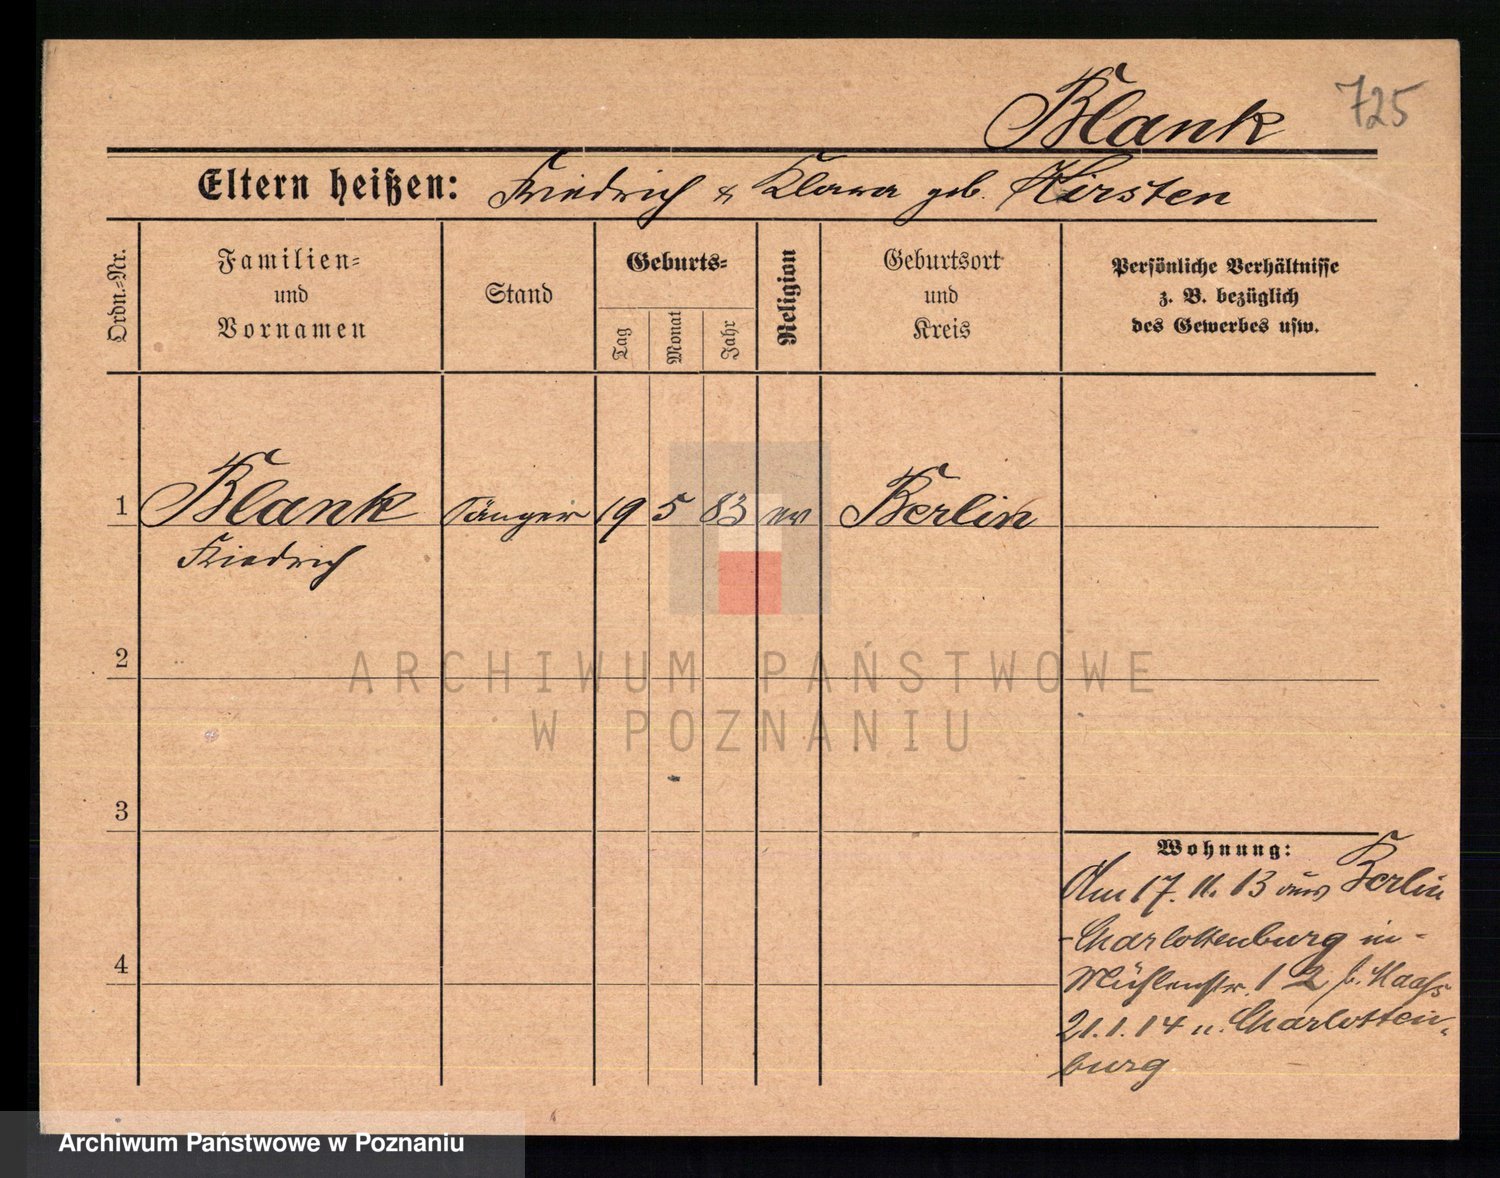 Blank 725
Eltern heißen: Friedrich & Klara geb. Kirsten
Ordn.-Nr.
Familien-
und
Vornamen
Stand
Geburts-
Tag
Monat
Jahr
Religion
Geburtsort
und
Kreis
Persönliche Verhältnisse
z. B. bezüglich
des Gewerbes usw.
1 Blank Sänger 19 5 83 ev Berlin
Friedrich
2
ARCHIWUM PAŃSTWOWE
W POZNANIU
3
Wohnung:
Am 17. 11. 13 aus Berlin
-Charlottenburg in
4
Mühlenstr. 12 b. Haaß
21.1.14 n. Charlotten-
burg
Archiwum Państwowe w Poznaniu